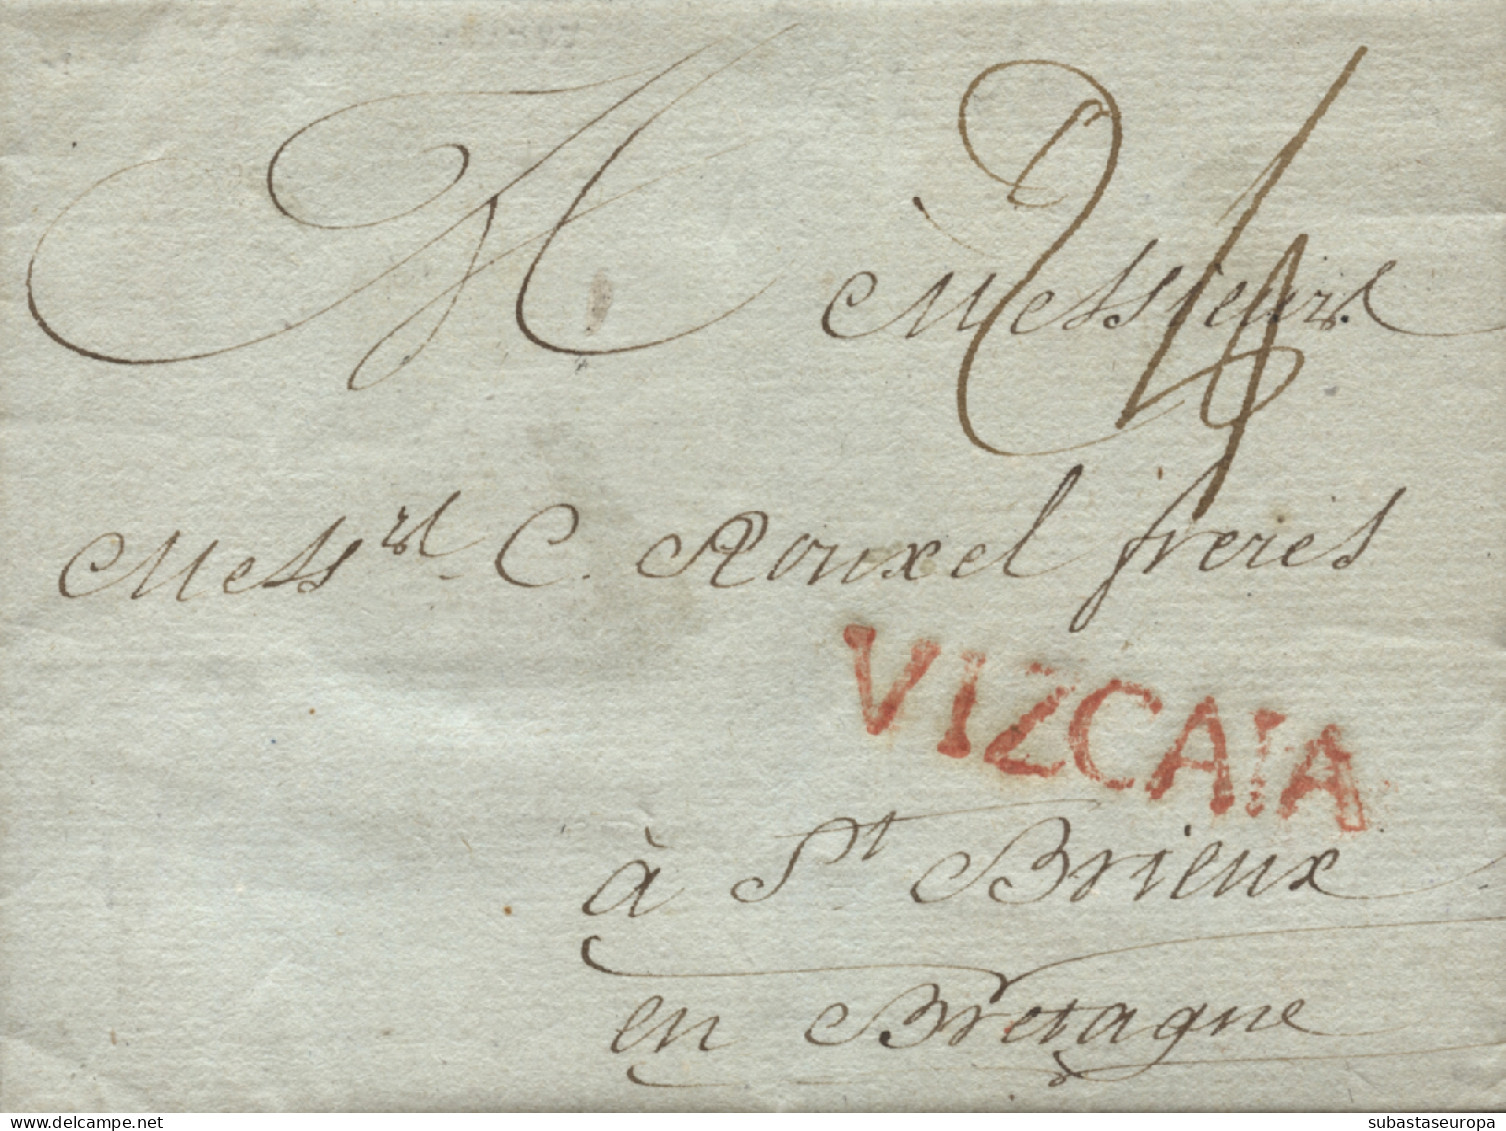 A Messieurs
24
Messrs. C. Rouxel freres
VIZCAIA
à St Brieux
en Bretagne
delcampe.net
subastaseuropa